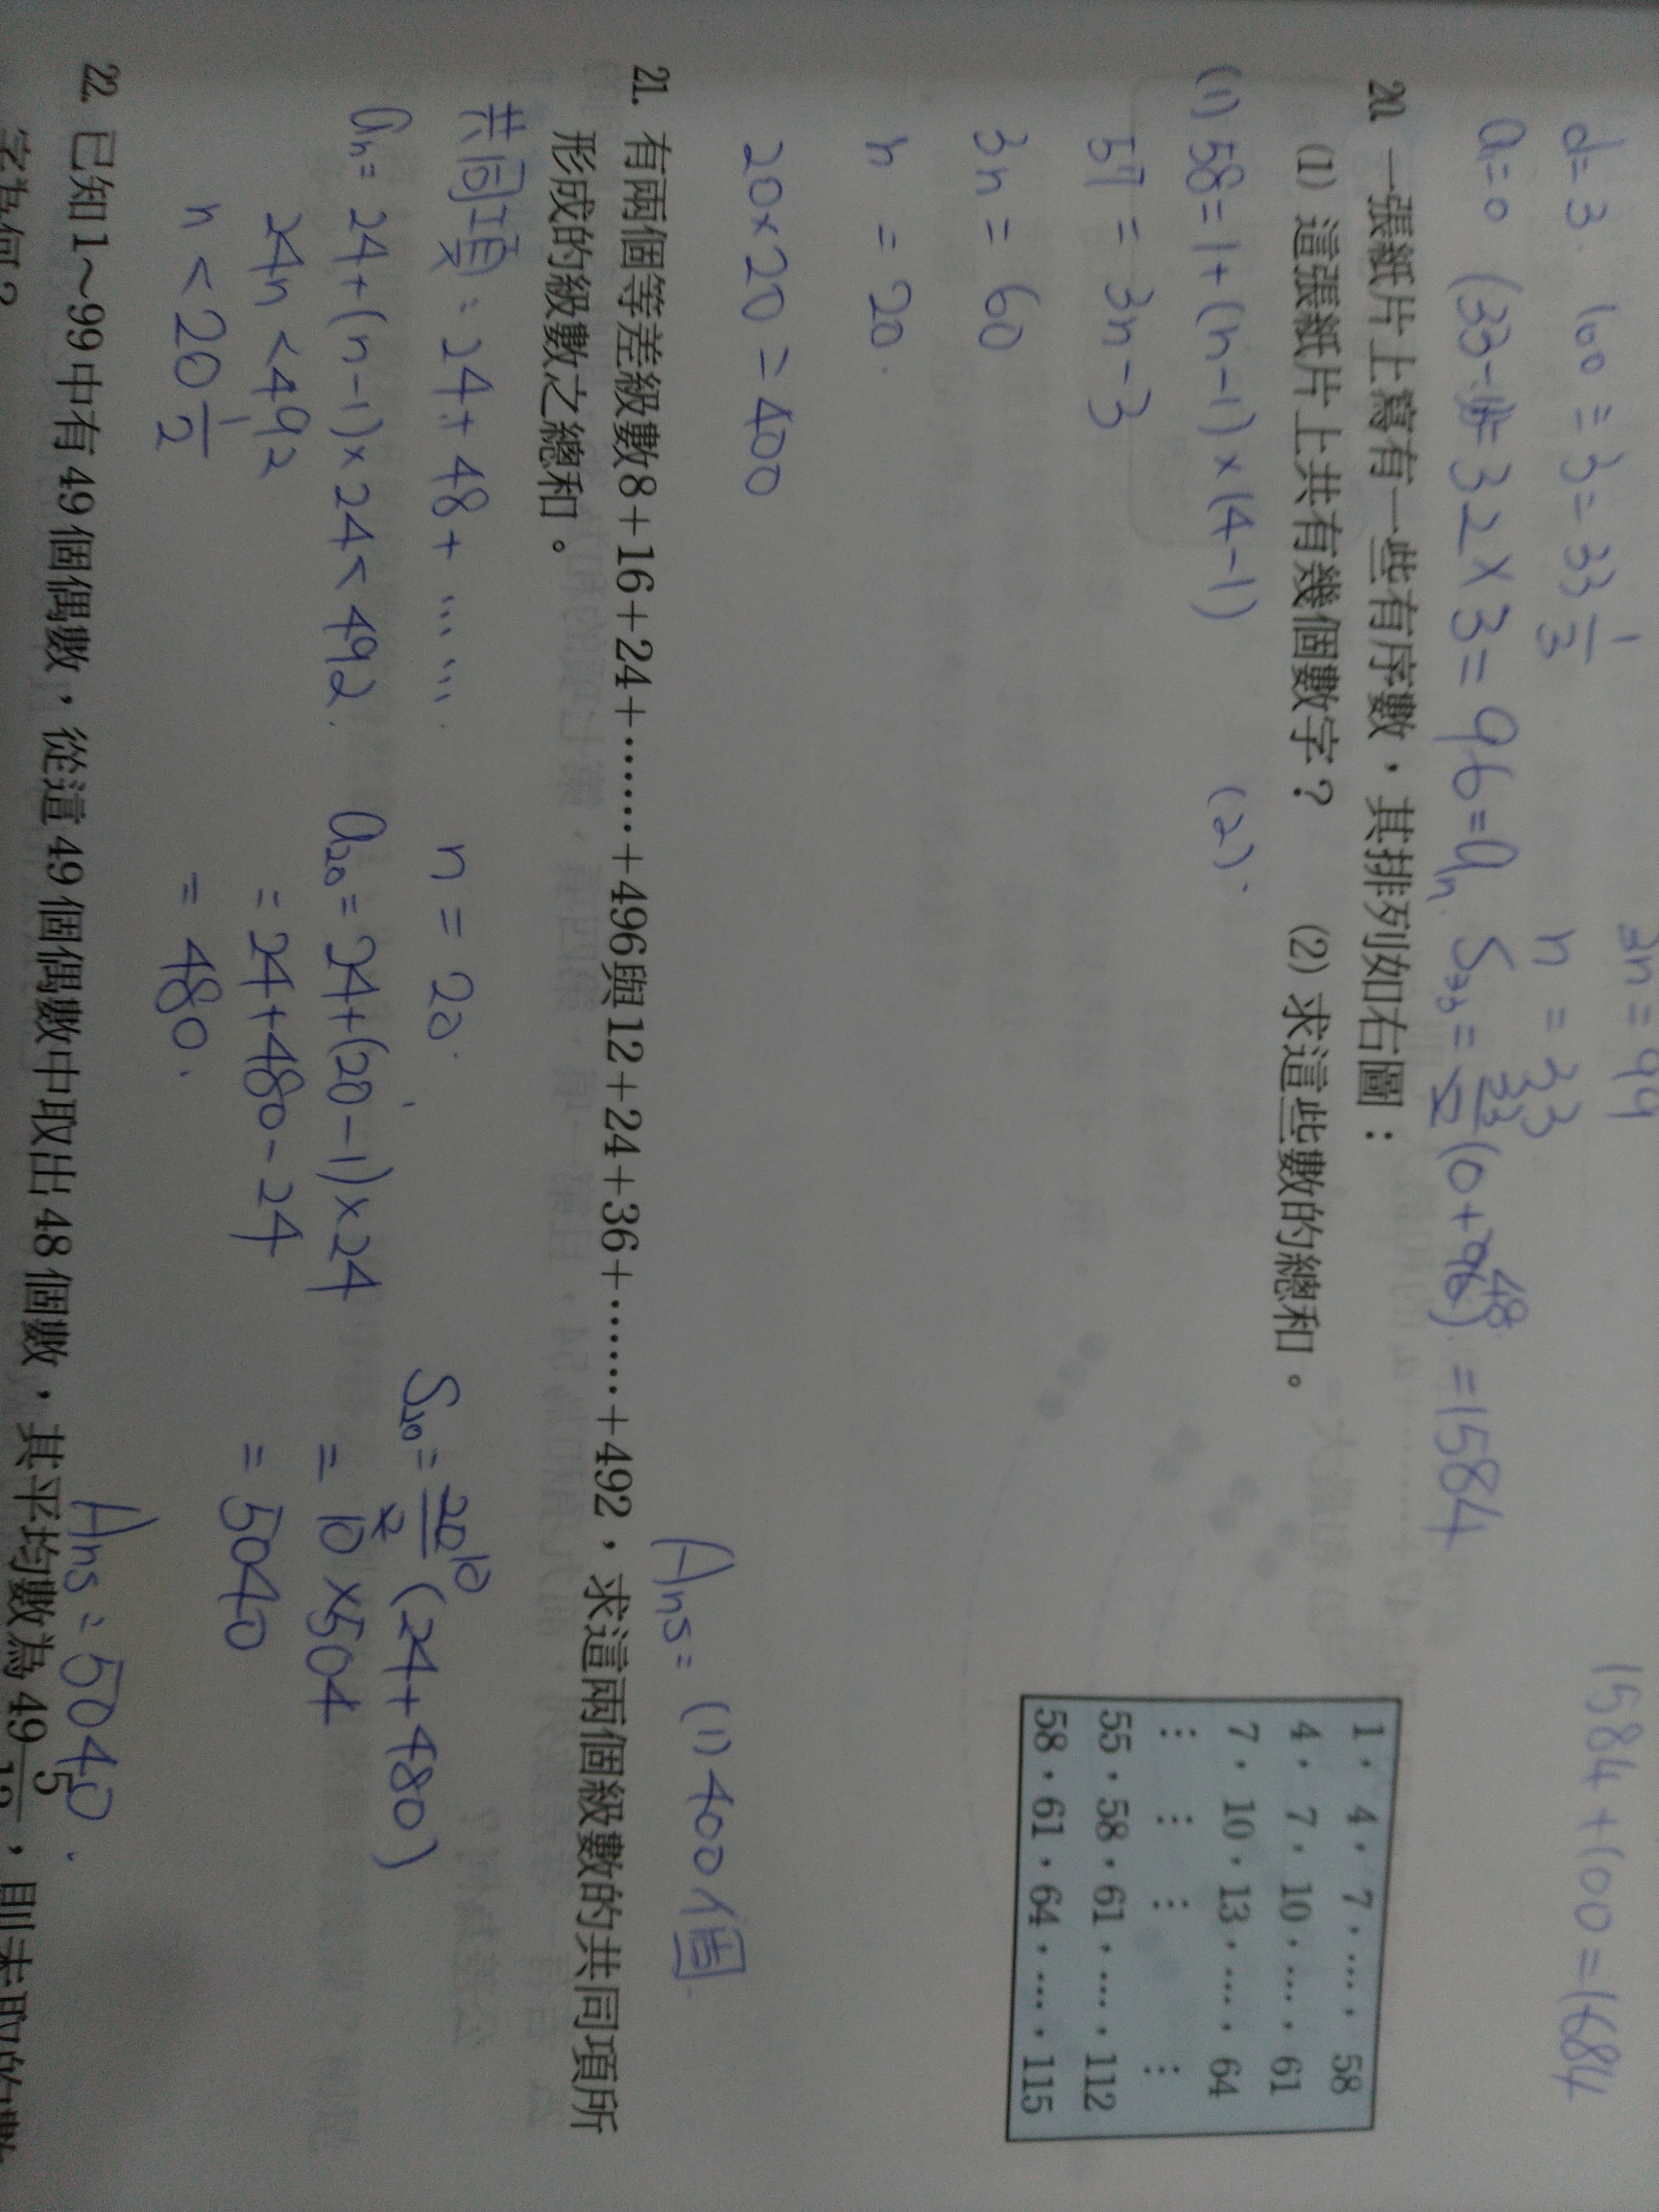 3n = 99
1584 + 100 = 1684
d = 3 100 ÷ 3 = 33 1/3 n = 33
a = 0 (33-1) = 32 × 3 = 96 = an. S33 = 33/2 (0+96) 48 = 1584
20. 一張紙片上寫有一些有序數,其排列如右圖:
(1) 這張紙片上共有幾個數字? (2) 求這些數的總和。
1, 4, 7, …, 58
4, 7, 10, …, 61
7, 10, 13, …, 64
⋮ ⋮ ⋮ ⋮
55, 58, 61, …, 112
58, 61, 64, …, 115
(1) 58 = 1 + (n-1) × (4-1) (2).
57 = 3n - 3
3n = 60
n = 20.
20 × 20 = 400
Ans = (1) 400個
21. 有兩個等差級數8+16+24+……+496與12+24+36+……+492,求這兩個級數的共同項所
形成的級數之總和。
共同項: 24 + 48 + ……. n = 20. S20 = 20/2 10 (24+480)
an = 24 + (n-1) × 24 < 492. a20 = 24 + (20-1) × 24 = 10 × 504
24n < 492 = 24 + 480 - 24 = 5040
n < 20 1/2 = 480.
Ans : 5040.
22. 已知1~99中有49個偶數,從這49個偶數中取出48個數,其平均數為49 5/12,則未取的數
字為何?